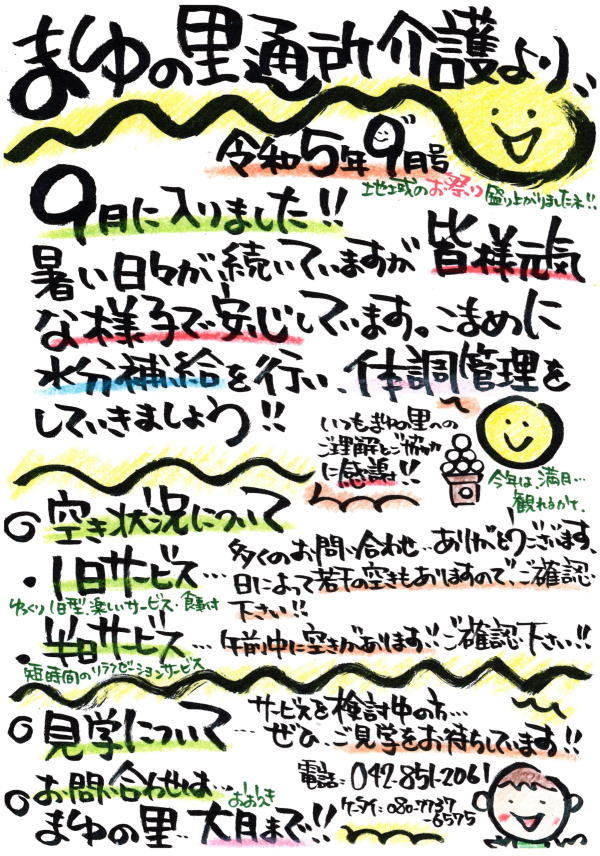 まゆの里通所介護より、
令和5年9月号
地域のお祭り盛り上がりましたネ!!
9月に入りました!!
暑い日々が、続いていますが皆様元気
な様子で安心しています。こまめに
水分補給を行い、体調管理を
していきましょう!!
いつもまゆの里への
ご理解とご協力
に感謝!!
今年は満月…
観れるかな。
空き状況について
・1日サービス…
多くのお問い合わせ…ありがとうございます。
日によって若干の空きもありますので、ご確認
下さい!!
ゆっくり1日型、楽しいサービス・食事付
・半日サービス…午前中に空きがあります!!ご確認下さい!!
短時間のリラクゼーションサービス
見学について…
サービスを検討中の方…
ぜひ、ご見学をお待ちしています!!
お問い合わせは…
電話:042-851-2061
ケータイ:080-7737
-6575
おおつき
まゆの里…大月まで!!